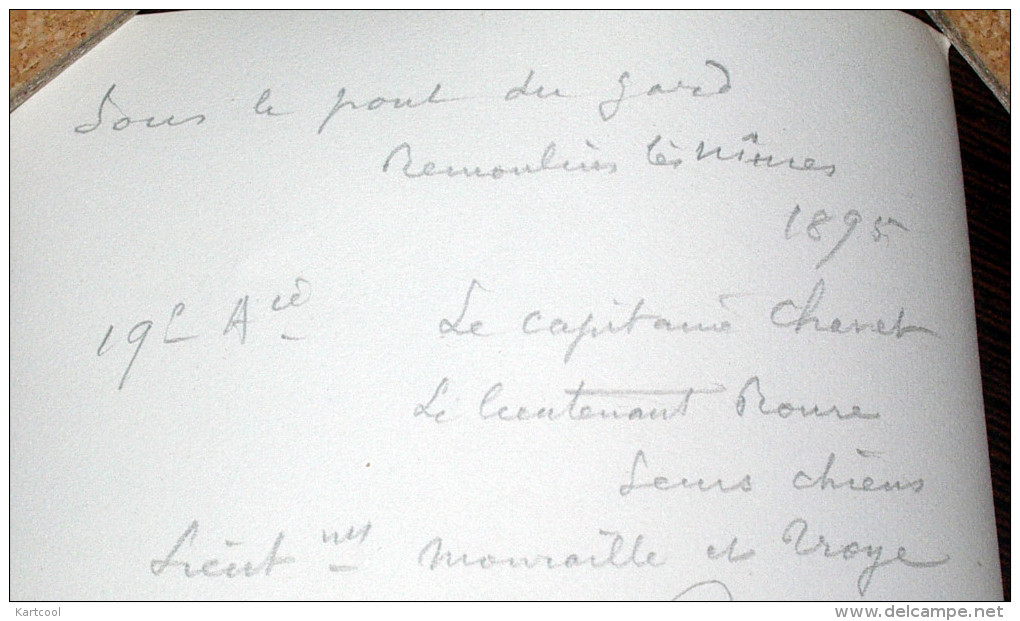 Sous le pont du gard
Remoulins lès Nîmes
1895
19e Aie Le capitaine Chavet
Le lieutenant Roure
Leurs chiens
Lieut nts Mouraille et Troye
Kartcool
www.delcampe.net